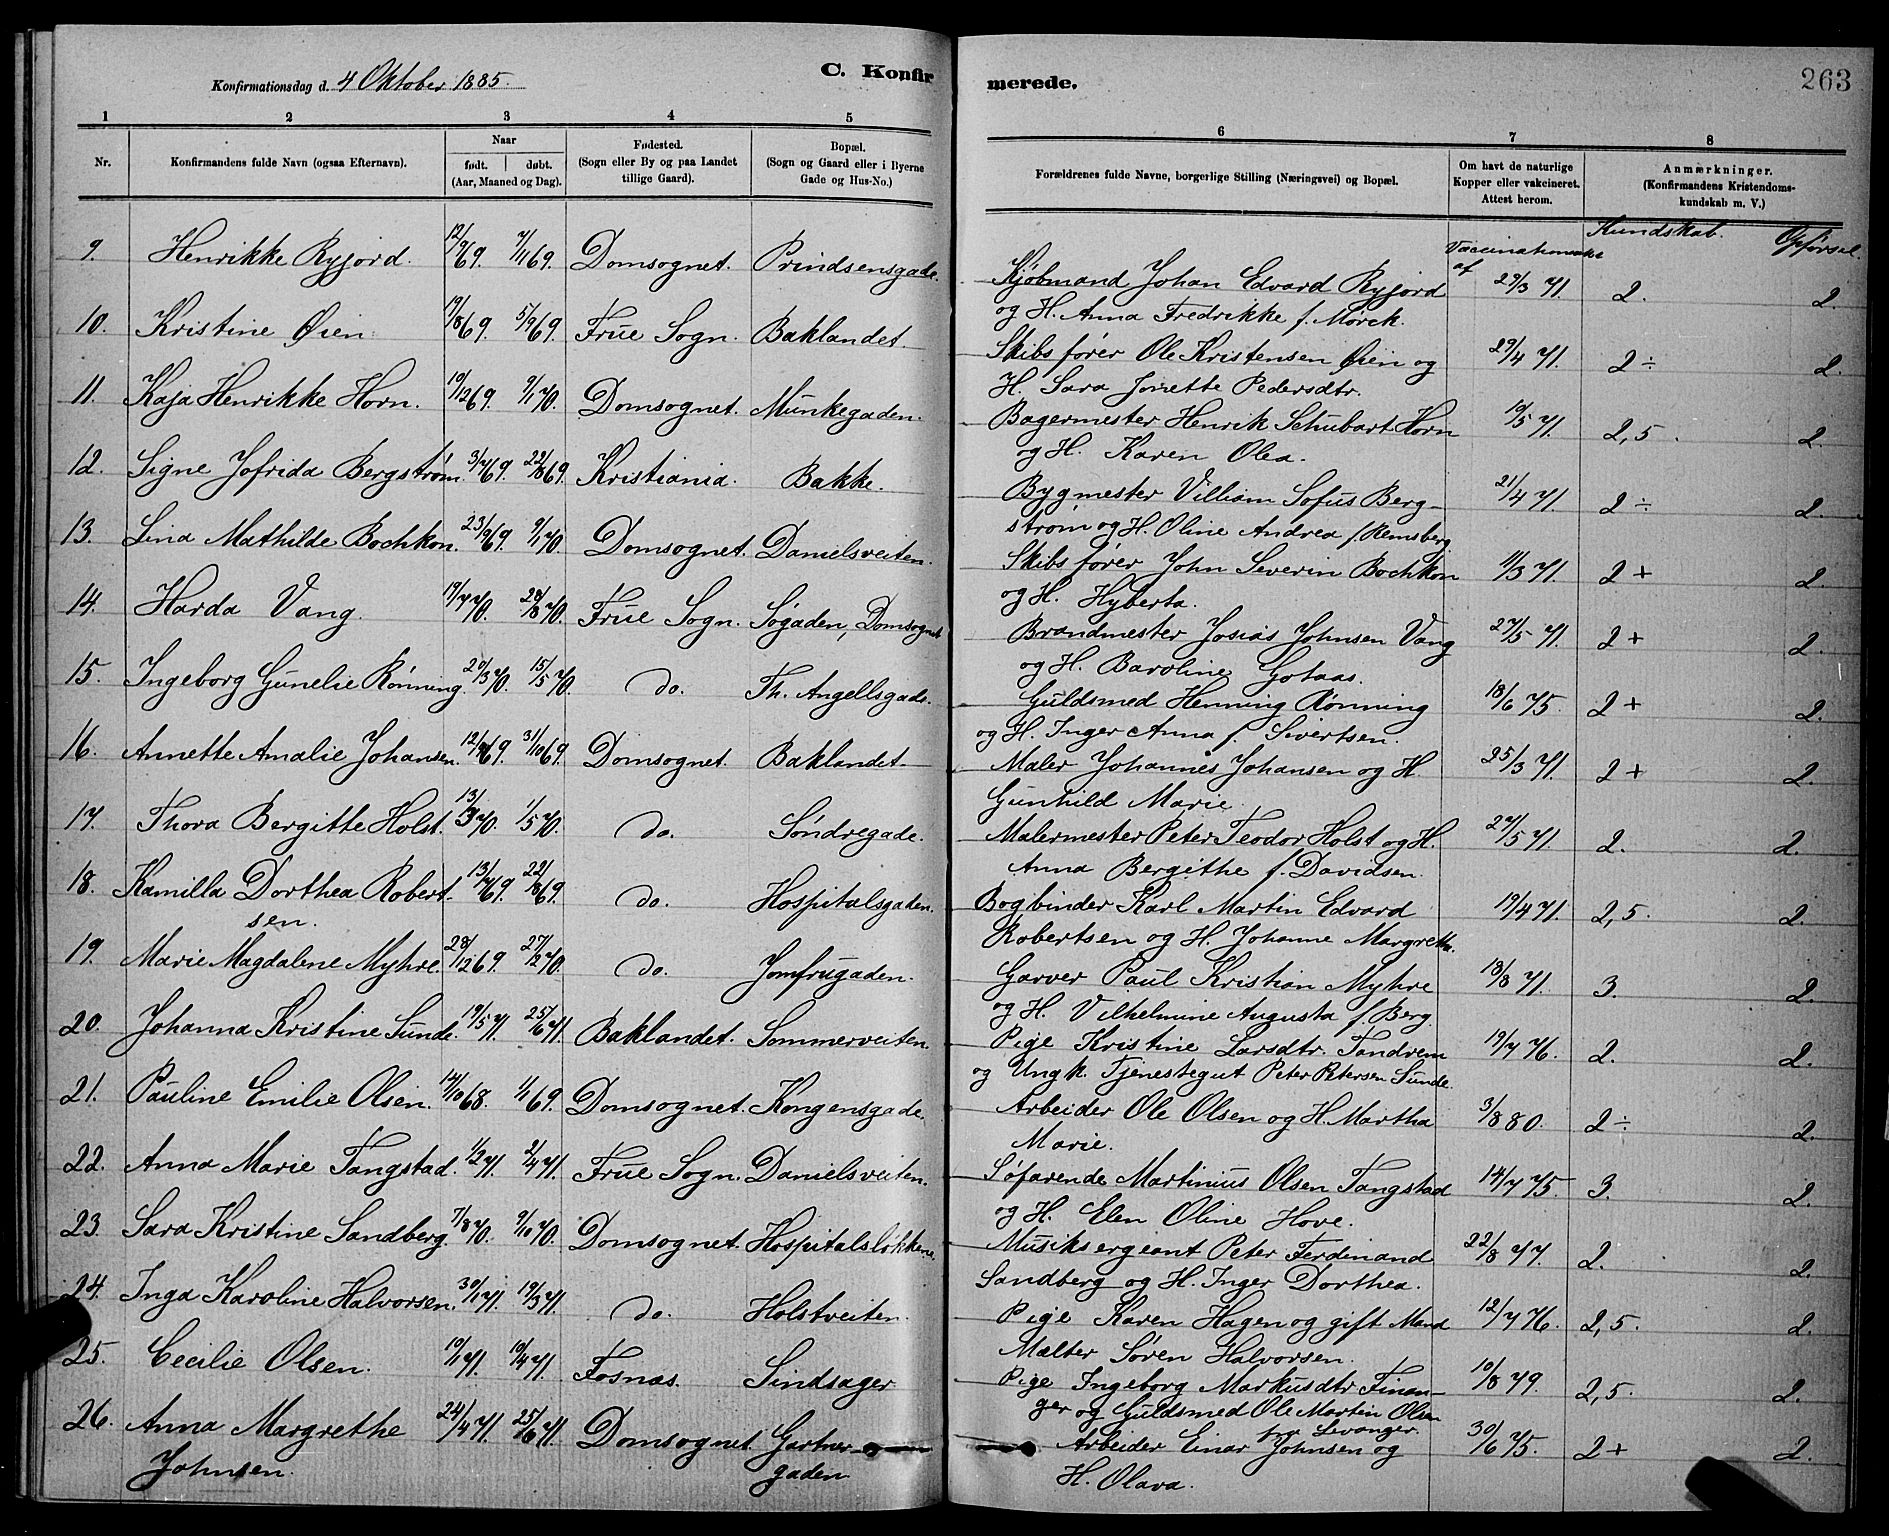 Konfirmationsdag d. 4 Oktober 1885.
C. Konfirmerede.
263
1 2 3 4 5 6 7 8
Nr.
Konfirmandens fulde Navn (ogsaa Efternavn).
Naar
født. døbt.
(Aar, Maaned og Dag).
Fødested.
(Sogn eller By og paa Landet
tillige Gaard).
Bopæl.
(Sogn og Gaard eller i Byerne
Gade og Hus-No.)
Forældrenes fulde Navne, borgerlige Stilling (Næringsvei) og Bopæl.
Om havt de naturlige
Kopper eller vakcineret.
Attest herom.
Anmærkninger.
(Konfirmandens Kristendoms-
kundskab m. V.)
Kundskab. Opførsel.
af
9. Henrikke Ryjord. 12/9 69. 7/11 69. Domsognet. Prindsensgade. Kjøbmand Johan Edvard Ryjord 29/3 71. 2. 2.
og H. Anna Fredrikke f. Mørck.
10. Kristine Øien 19/8 69. 5/9 69. Frue Sogn. Baklandet. Skibsfører Ole Kristensen Øien og 29/4 71. 2÷ 2.
H. Sara Jonette Pedersdtr.
11. Kaja Henrikke Horn. 19/12 69. 9/1 70. Domsognet. Munkegaden. Bagermester Henrik Schubart Horn 19/5 71. 2,5. 2.
og H. Karen Olea.
12. Signe Jofrida Bergstrøm. 3/7 69. 22/8 69. Kristiania. Bakke. Bygmester Villiam Sofus Berg- 21/4 71. 2÷ 2.
strøm og H. Oline Andrea f. Remsberg
13. Lina Mathilde Bochkon. 23/9 69. 9/1 70. Domsognet. Danielsveiten. Skibsfører John Severin Bochkon 11/3 71. 2+ 2.
og H. Hyberta.
14. Harda Vang. 19/7 70. 28/8 70. Frue Sogn. Søgaden, Domsognet Brandmester Josias Johnsen Vang 27/5 71. 2+ 2.
og H. Baroline Gotaas.
15. Ingeborg Gunelie Rønning. 20/3 70. 15/5 70. do. Th. Angellsgade. Guldsmed Henning Rønning 18/6 75. 2+ 2.
og H. Inger Anna f. Sivertsen.
16. Annette Amalie Johansen. 12/9 69. 31/10 69. Domsognet. Baklandet Maler Johannes Johansen og H. 25/3 71. 2+ 2.
Gunhild Marie.
17. Thora Bergitte Holst. 13/3 70. 1/5 70. do. Søndregade. Malermester Peter Teodor Holst og H. 27/5 71. 2. 2.
Anna Bergithe f. Davidsen.
18. Kamilla Dorthea Robert- 13/7 69. 22/8 69. do. Hospitalsgaden. Bogbinder Karl Martin Edvard 19/4 71. 2,5. 2.
sen. Robertsen og H. Johanne Margrethe.
19. Marie Magdalene Myhre. 28/12 69. 27/2 70. do. Jomfrugaden. Garver Paul Kristian Myhre 18/8 71. 3. 2.
og H. Vilhelmine Augusta f. Berg.
20. Johanna Kristine Sunde. 19/5 71. 25/6 71. Baklandet. Sommerveiten. Pige Kristine Larsdtr. Tandrem 19/7 76. 2. 2.
og Ungk. Tjenestegut Peter Petersen Sunde.
21. Pauline Emilie Olsen. 14/10 68. 1/1 69. Domsognet. Kongensgade. Arbeider Ole Olsen og H. Martha 3/8 80. 2÷ 2.
Marie.
22. Anna Marie Tangstad. 1/2 71. 2/4 71. Frue Sogn. Danielsveiten. Søfarende Martinius Olsen Tangstad 14/7 75. 3. 2.
og H. Elen Oline Hove.
23. Sara Kristine Sandberg. 7/8 70. 9/10 70. Domsognet. Hospitalsløkkene. Musiksergeant Peter Ferdinand 22/8 77. 2. 2.
Sandberg og H. Inger Dorthea.
24. Inga Karoline Halvorsen. 30/1 71. 19/3 71. do. Holstveiten. Pige Karen Hagen og gift Mand 12/7 76. 2,5. 2.
Malter Søren Halvorsen.
25. Cecilie Olsen. 19/1 71. 10/4 71. Fosnæs. Sindsager Pige Ingeborg Markusdtr Finan- 10/8 79. 2,5. 2.
ger og Guldsmed Ole Martin Olsen
fra Levanger.
26. Anna Margrethe 24/4 71. 25/6 71. Domsognet Gartner- Arbeider Einar Johnsen og 30/6 75. 2+ 2.
Johnsen. gaden H. Olava.